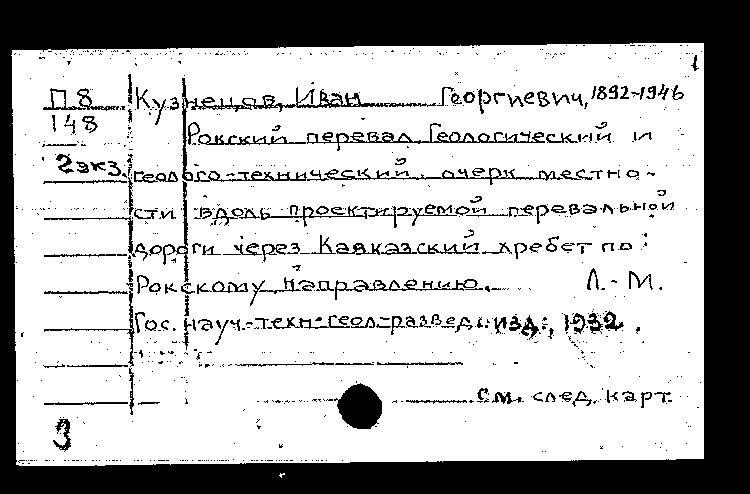 1
П 8 Кузнецов, Иван Георгиевич, 1892-1946
148 Рокский перевал. Геологический и
2 экз. геолого-технический очерк местно-
сти вдоль проектируемой перевальной
дороги через Кавказский хребет по
Рокскому направлению. Л.-М.
Гос. науч.-техн. геол-развед. изд., 1932.
см. след. карт.
3